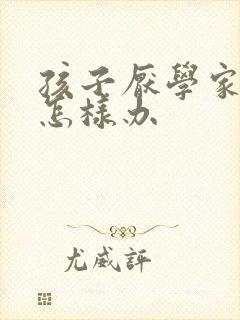 孩子厭學家
怎樣办
尤威評